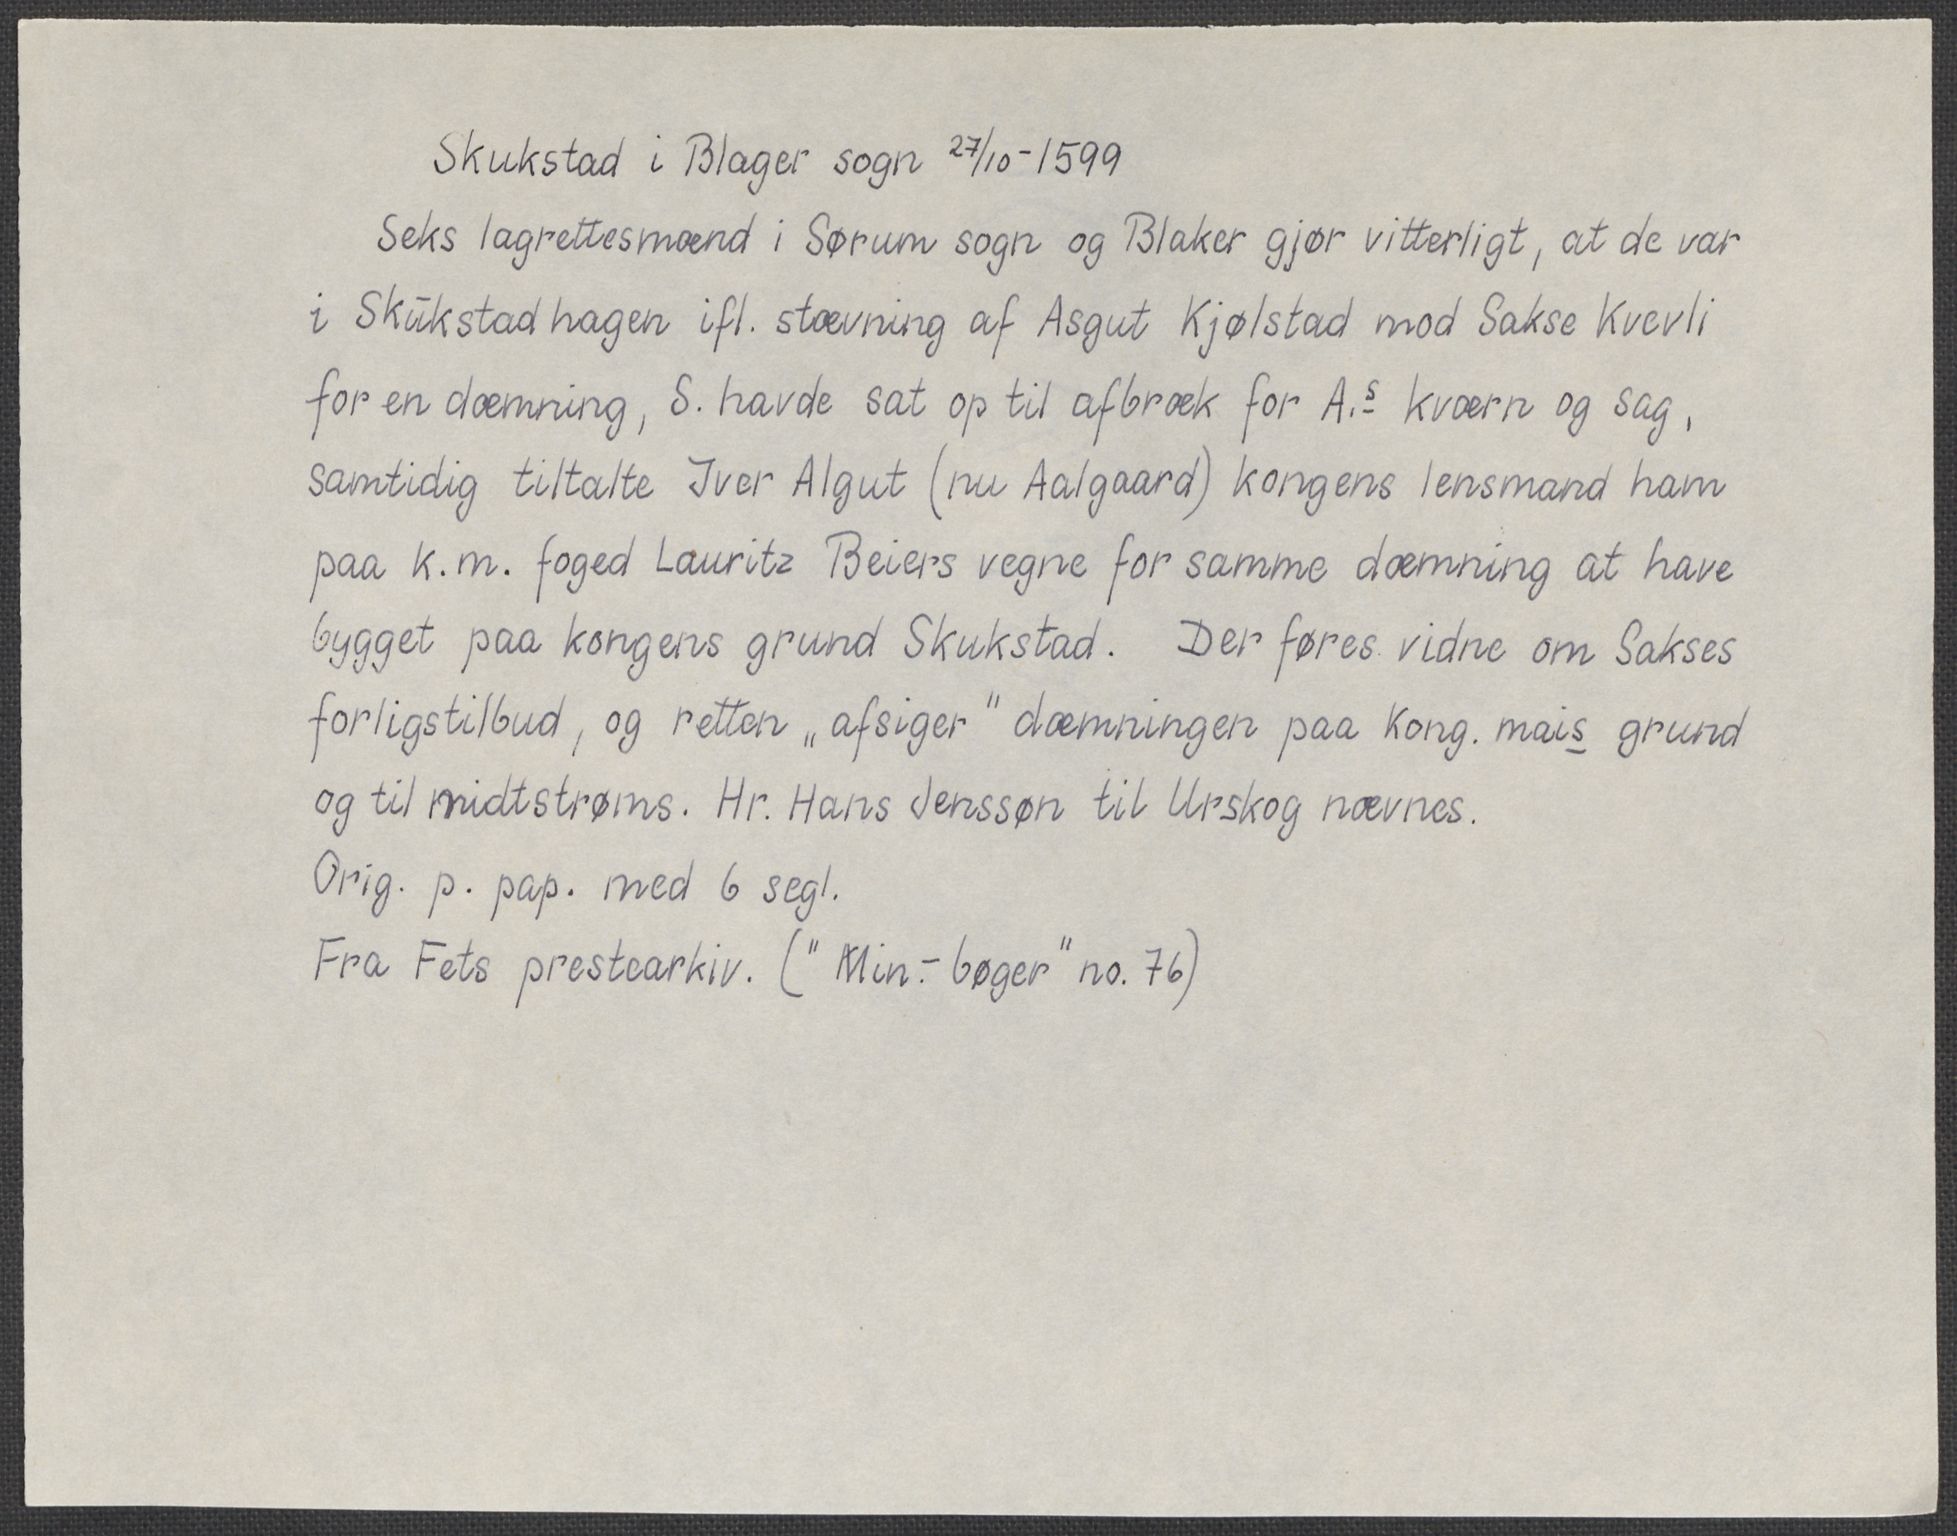 Skukstad i Blager sogn 27/10-1599
Seks lagrettesmænd i Sørum sogn og Blaker gjør vitterligt, at de var
i Skūkstadhagen ifl. stævning af Asgut Kjølstad mod Sakse Kvevli
for en dæmning, S. havde sat op til afbræk for A.s kværn og sag,
samtidig tiltalte Iver Algut (nu Aalgaard) kongens lensmand ham
paa k.m. foged Lauritz Beiers vegne for samme dæmning at have
bygget paa kongens grund Skukstad. Der føres vidne om Sakses
forligstilbud, og retten „afsiger" dæmningen paa Kong. mais grund
og til midtstrøms. Hr. Hans Jenssøn til Urskog nævnes.
Orig. p. pap. med 6 segl.
Fra Fets prestearkiv. ("Min.-bøger" no. 76)